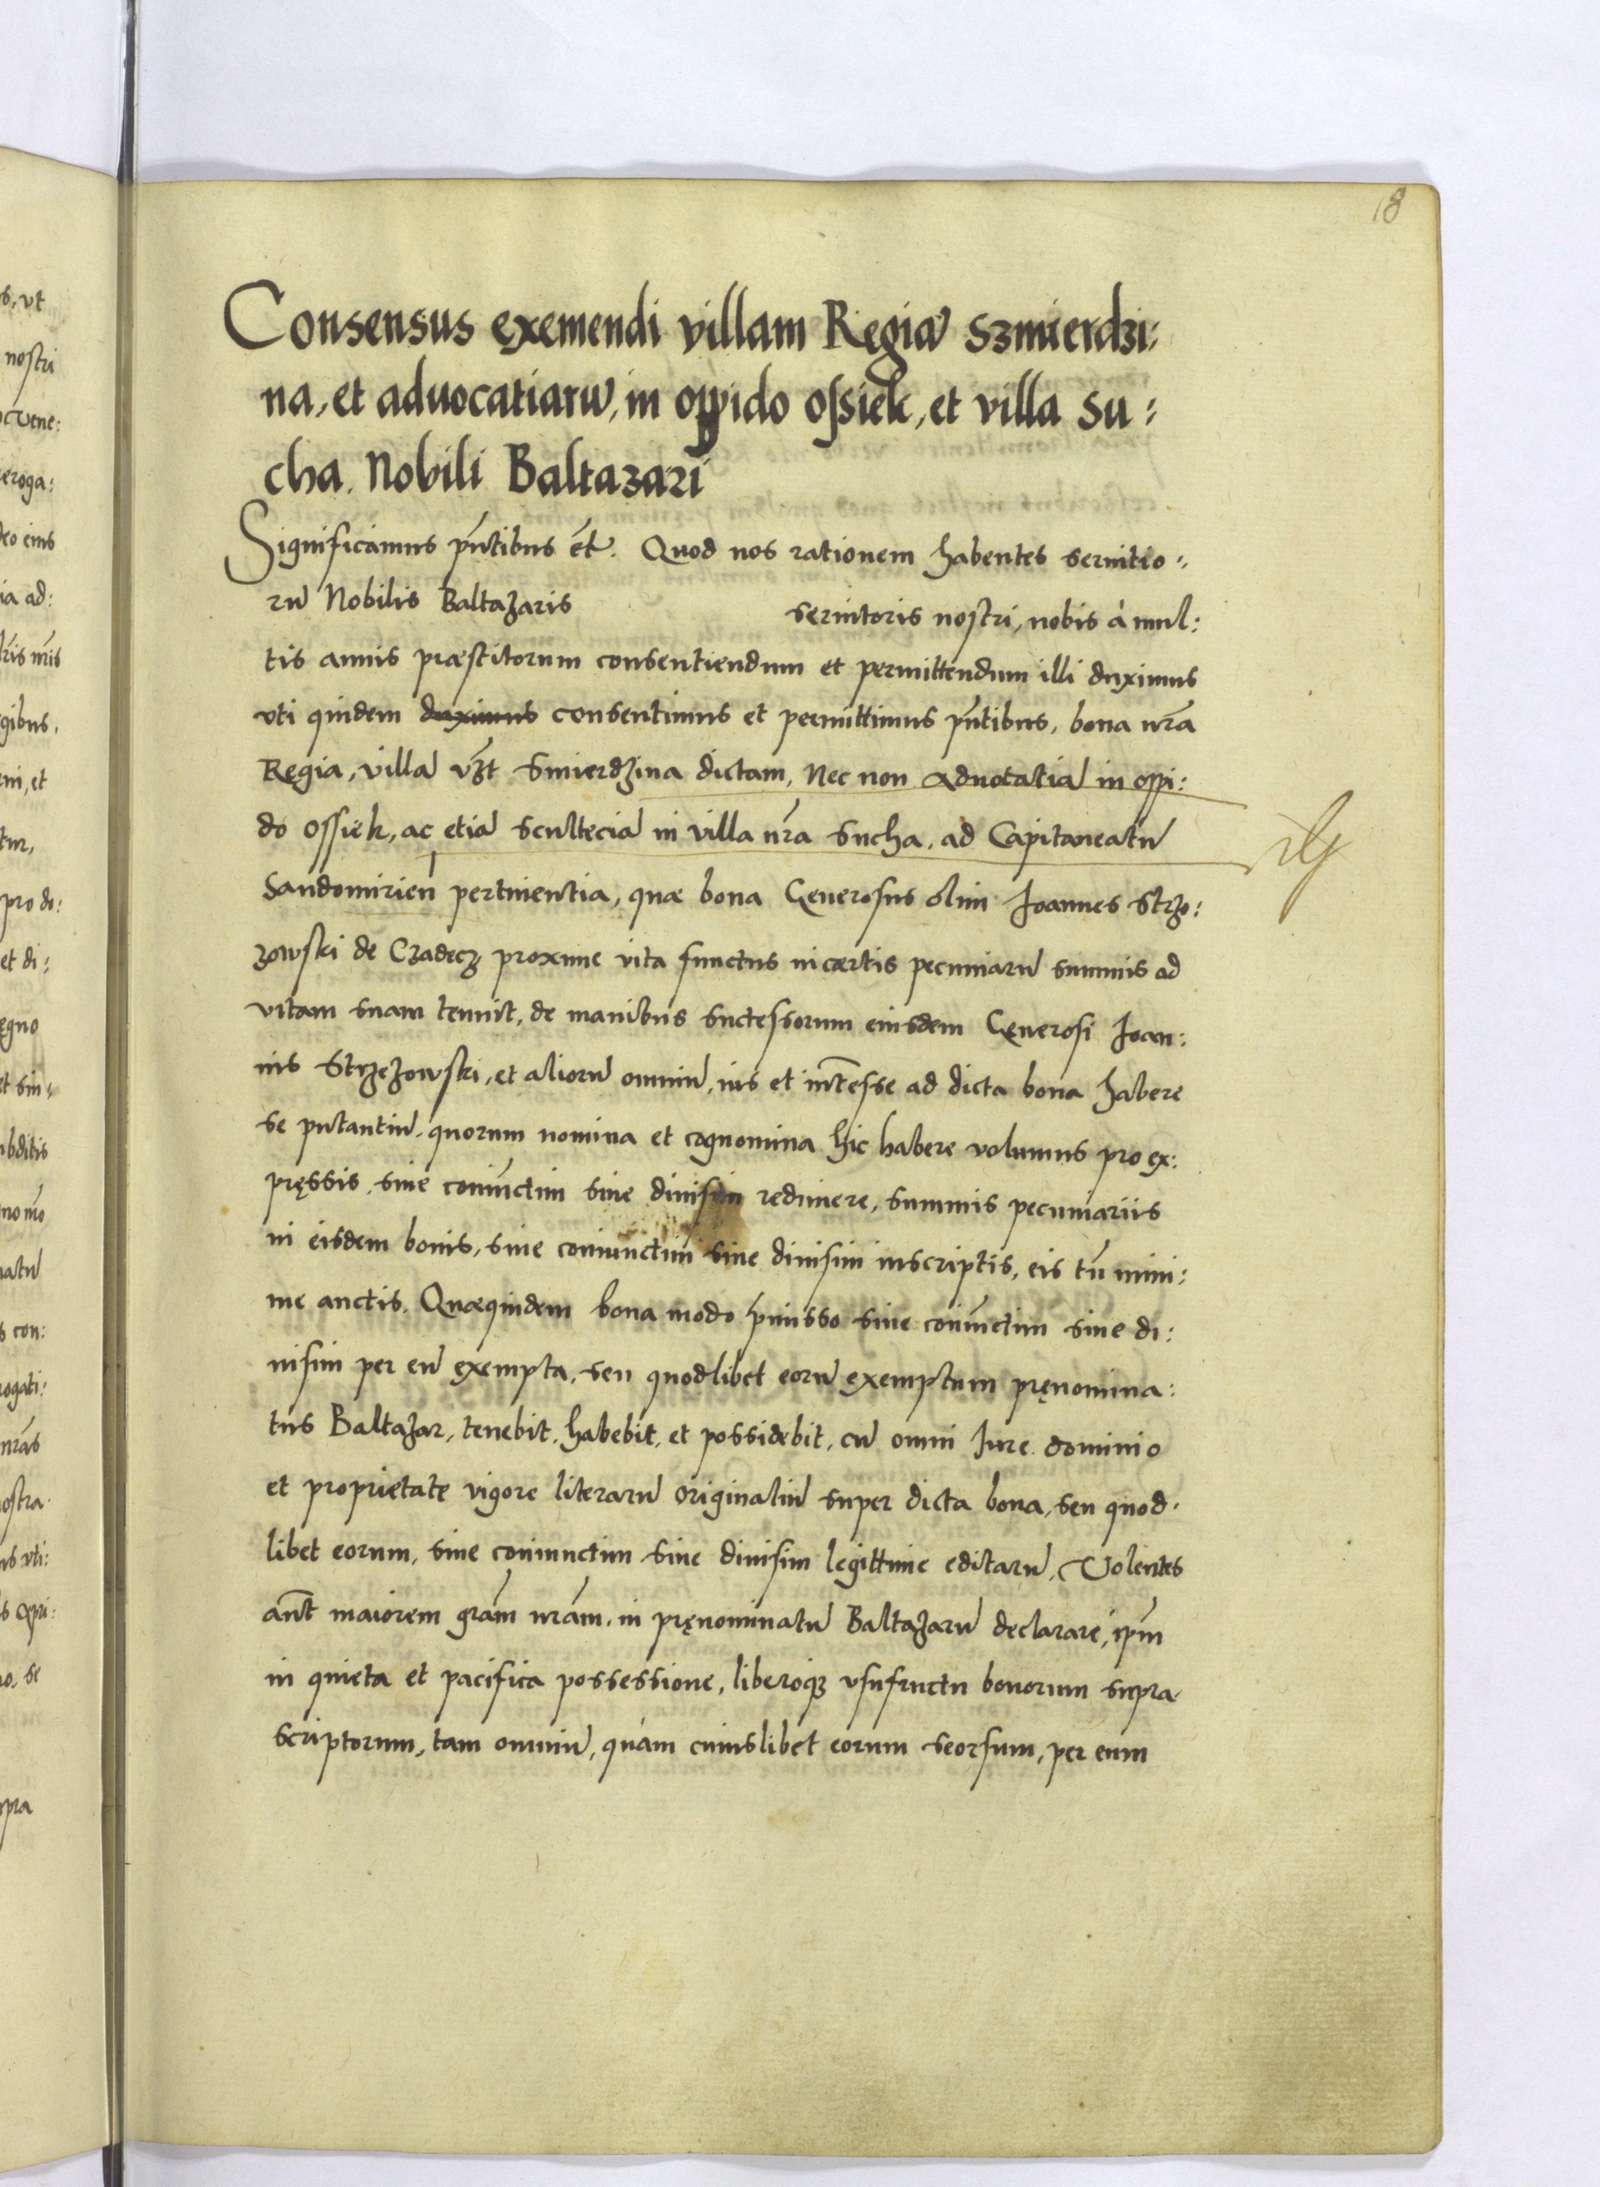 18
Consensus exemendi villam Regiā Szmierdzi:
na, et aduocatiarū, in oppido ossiek, et villa Su:
cha. Nobili Baltazari
Significamus pn̄tibus et̄. Quod nos rationem habentes seruitio:
rū Nobilis Baltazaris seruitoris nostri, nobis à mul:
tis annis præstitorum consentiendum et permittendum illi duximus
vti quidem duximus consentimus et permittimus pn̄tibus, bona nr̄a
Regia, villā vzt Smierdzina dictam, Nec non aduocatiā in oppi:
do ossiek, ac etiā sculteciā in villa nr̄a Sucha, ad Capitaneatū
Sandomirien pertinentia, quæ bona Generosus olim Joannes Strzo:
zowski de Czadecz proxime vita functus in cærtis pecuniarū summis ad
vitam suam tenuit, de manibus suctessorum eiusdem Generosi Joan:
nis Strzezowski, et aliorū omniū, ius et int̄esse ad dicta bona habere
se putantiū, quorum nomina et cognomina hic habere volumus pro ex:
pręssis, siue coniūctim siue diuisim redimere, summis pecuniariis
in eisdem bonis, siue coniunctim siue diuisim inscriptis, eis tn̄ mini:
me auctis. Quæquidem bona modo p̄misso siue coniūctim siue di:
uisim per eū exempta, seu quodlibet eorū exemptum pręnomina:
tus Baltazar, tenebit, habebit, et possidebit, cū omni Jure dominio
et proprietate vigore literarū originaliū super dicta bona, seu quod:
libet eorum, siue coniunctim siue diuisim legittime editarū. Volentes
aūt maiorem gr̄am nr̄am, in pręnominatū Baltazarū declarare, ip̄m
in quieta et pacifica possessione, liberoqz vsufructu bonorum supra
scriptorum, tam omniū, quàm cuiuslibet eorum seorsum, per eum